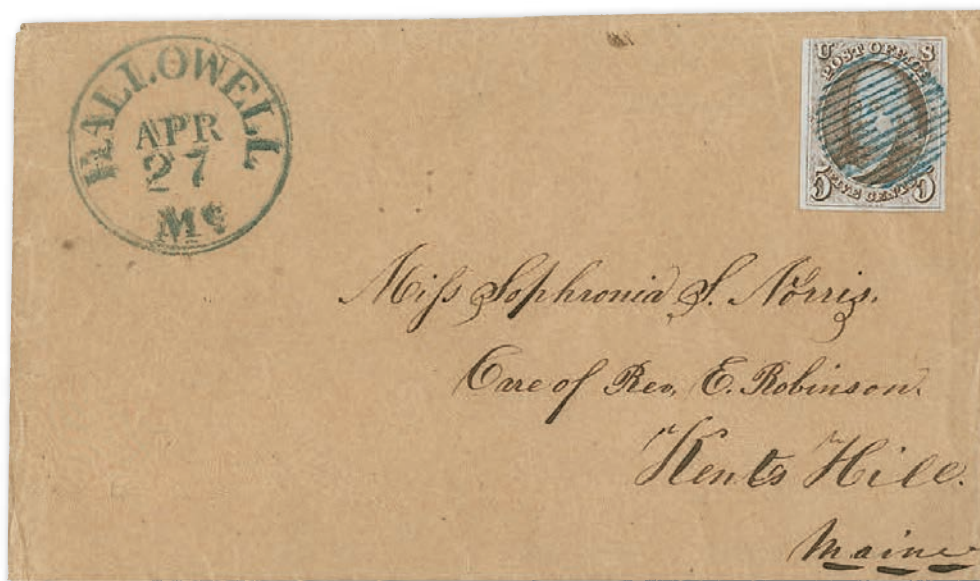 HALLOWELL
APR
27
Me
U S
POST OFFICE
FIVE CENTS
5 5
Miss Sophronia S. Norris.
Care of Rev. E. Robinson.
Kents Hill.
Maine